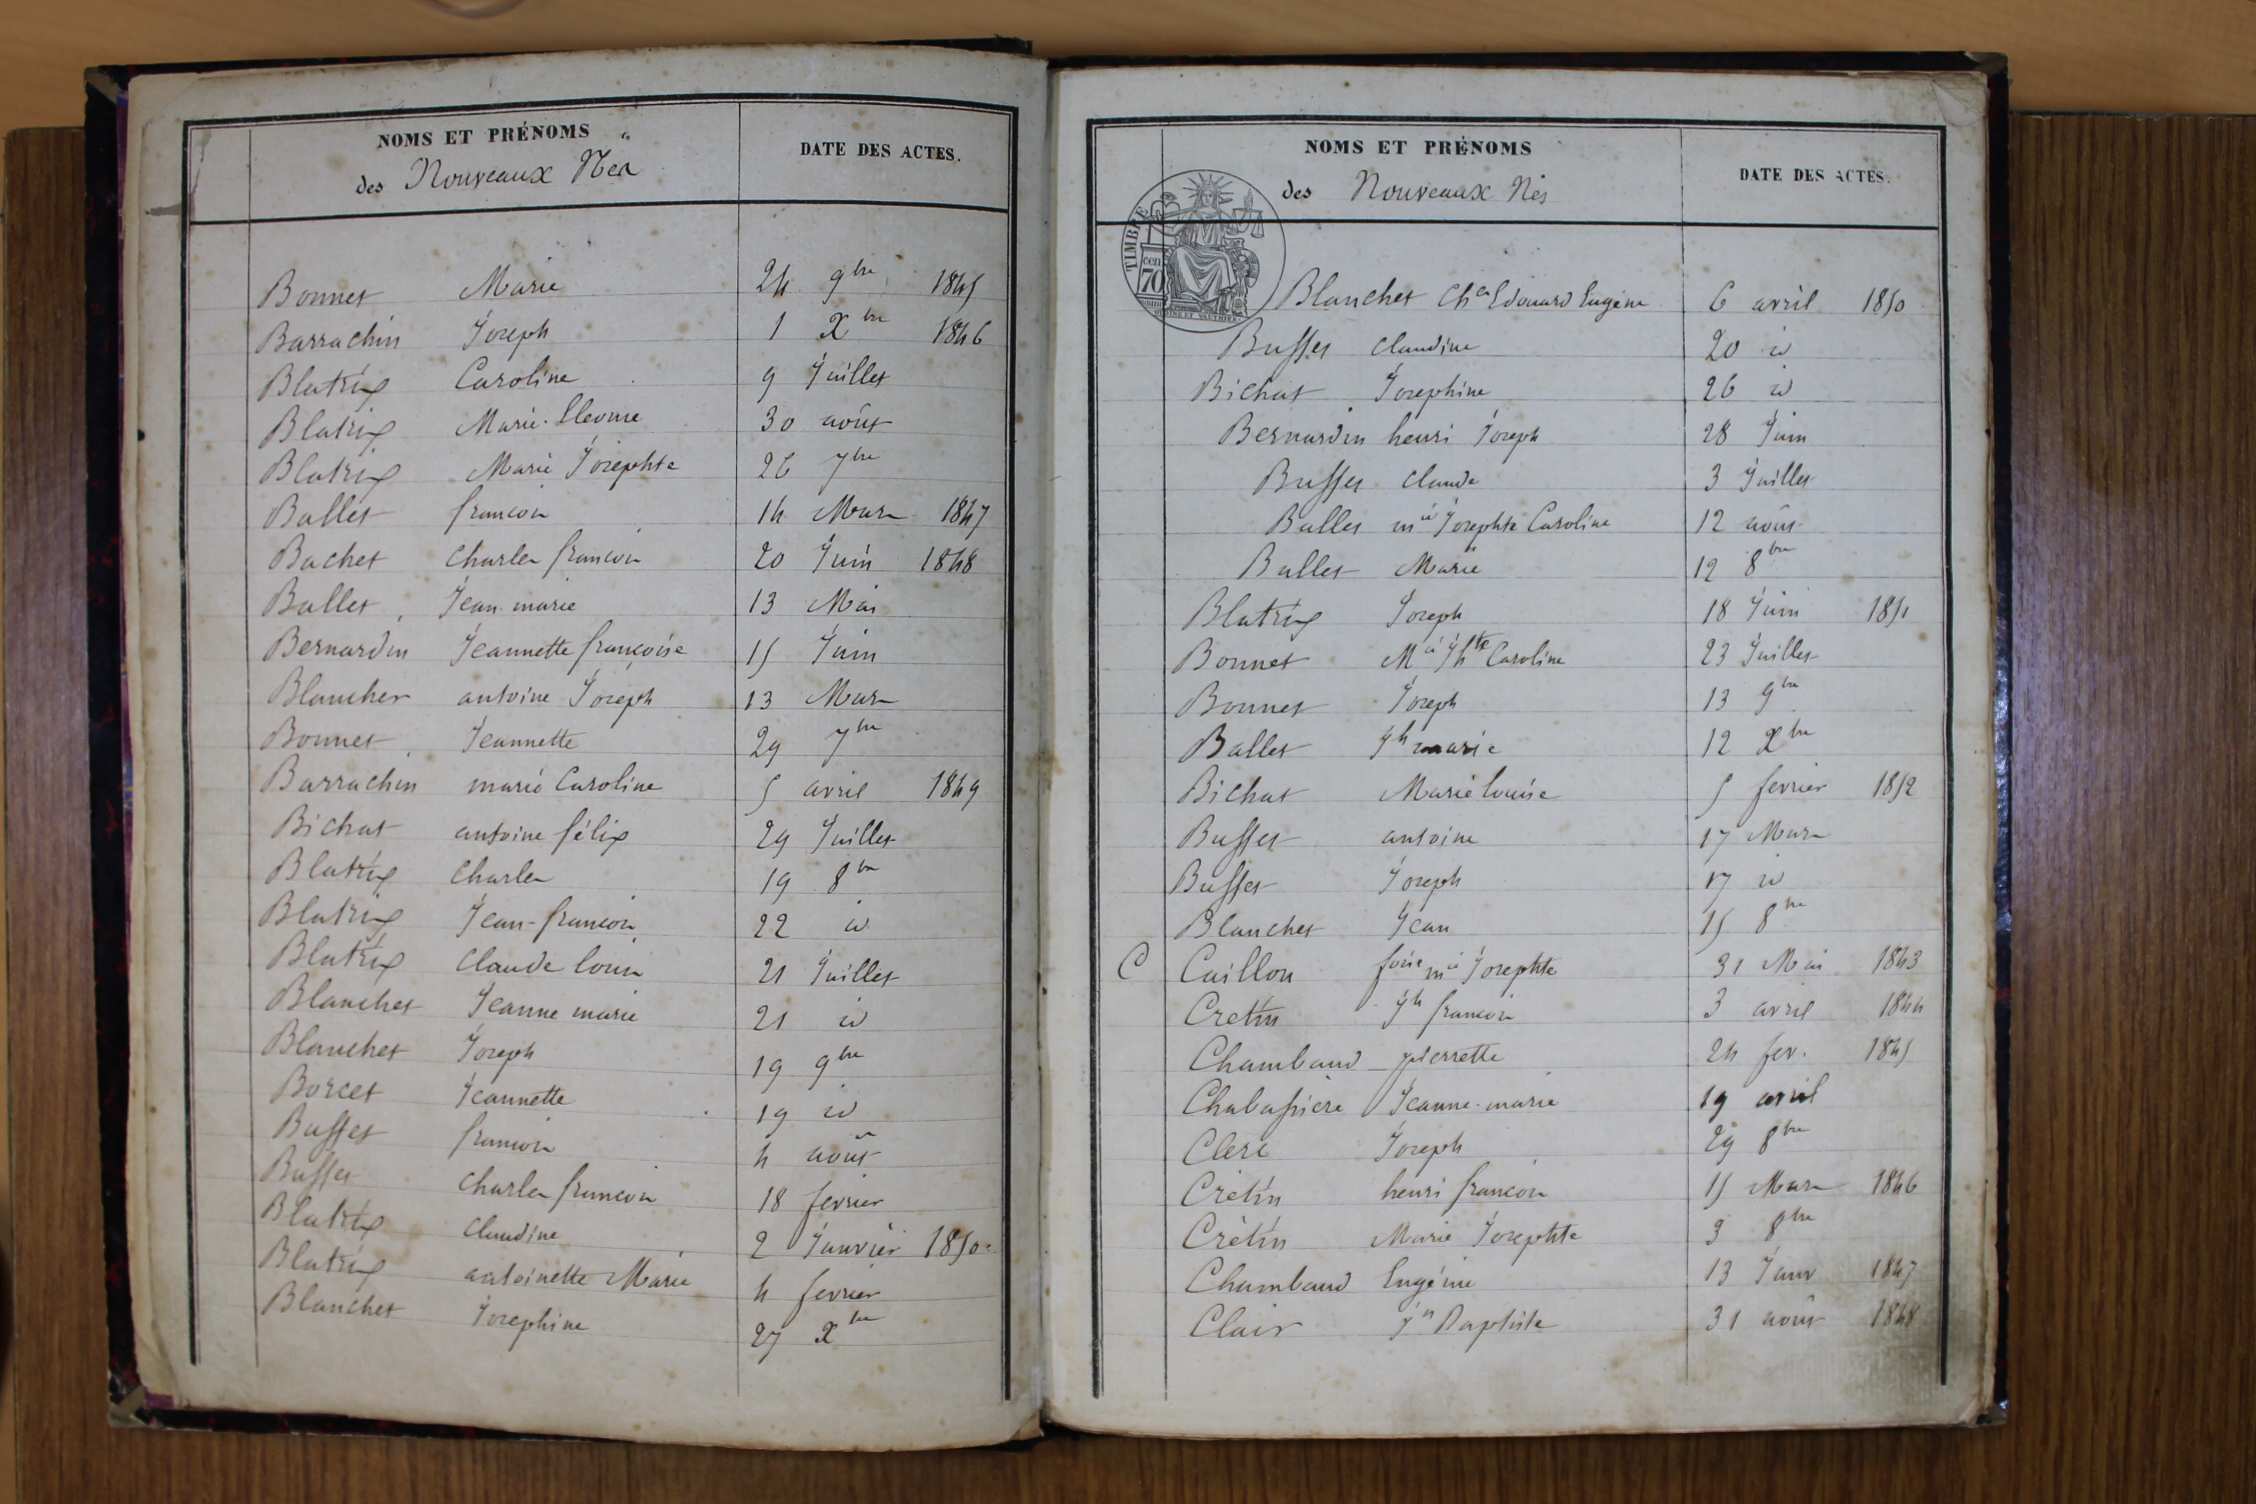 NOMS ET PRÉNOMS
des Nouveaux Nés
DATE DES ACTES.
Bonnet Marie 24 9bre 1845
Barrachin Joseph 1 Xbre 1846
Blatrix Caroline 9 Juillet
Blatrix Marie 30 août
Blatrix Marie Josephte 26 7bre
Ballet françois 14 Mars 1847
Bachet Charles françois 20 Juin 1848
Ballet Jean marie 13 Mai
Bernardin Jeannette françoise 15 Juin
Blanchet antoine Joseph 13 Mars
Bonnet Jeannette 29 7bre
Barrachin marie Caroline 5 avril 1849
Bichat antoine félix 29 Juillet
Blatrix Charles 19 8bre
Blatrix Jean-françois 22 id
Blatrix Claude louis 21 Juillet
Blanchet Jeanne marie 21 id
Blanchet Joseph 19 9bre
Borcet Jeannette 19 id
Buffet françois 4 août
Buffet Charles françois 18 fevrier
Blatrix Claudine 2 Janvier 1850
Blatrix antoinette Marie 4 fevrier
Blanchet Josephine 27 Xbre
NOMS ET PRÉNOMS
des Nouveaux Nés
DATE DES ACTES.
TIMBRE
70
Blanchet Ches Edouard Eugène 6 avril 1850
Buffet Claudine 20 id
Bichat Josephine 26 id
Bernardin henri Joseph 28 Juin
Buffet Claude 3 Juillet
Ballet mie Josephte Caroline 12 août
Ballet Marie 12 8bre
Blatrix Joseph 18 Juin 1851
Bonnet Mie Jhte Caroline 23 Juillet
Bonnet Joseph 13 9bre
Ballet Jh marie 12 Xbre
Bichat Marie louise 5 fevrier 1852
Buffet antoine 17 Mars
Buffet Joseph 17 id
Blanchet Jean 15 8bre
C Caillon mie Josephte 31 Mai 1843
Cretin Jh françois 3 avril 1844
Chambaud pierrette 24 fev. 1845
Chabassière Jeanne-marie 19 avril
Clerc Joseph 29 8bre
Crétin henri françois 15 Mars 1846
Crétin Marie Josephte 3 8bre
Chambaud Eugénie 13 Janv 1847
Clair Jn Baptiste 31 août 1848